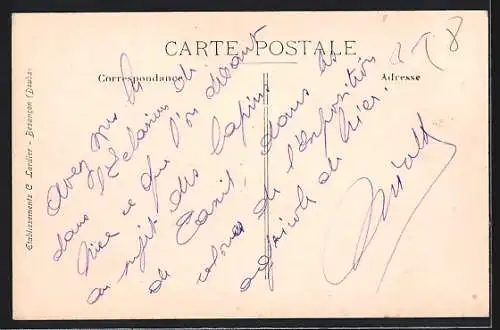 CARTE POSTALE
Correspondance
Adresse
Etablissements C. Lardier - Besançon (Doubs)
Avez vous lu
dans l'Eclaireur de
Nice ce que l'on disait
au sujet des lapins
de dans les
de l'exposition
agricole de hier.